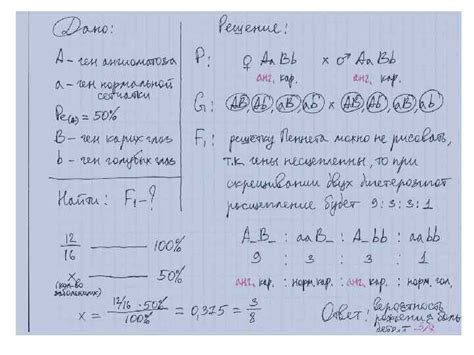 Дано:
А - ген ангиоматоза
а - ген нормальной
сетчатки
Pe(A) = 50%
В - ген карих глаз
b - ген голубых глаз
Найти: F₁ - ?
12/16 — 100%
x — 50%
(кол-во
заболевших)
x = 12/16 · 50% / 100% = 0,375 = 3/8
Решение:
P: ♀ Aa Bb x ♂ Aa Bb
анг. кар. анг. кар.
G: AB, Ab, aB, ab x AB, Ab, aB, ab
F₁: решётку Пеннета можно не рисовать,
т.к. гены несцеплены, то при
скрещивании двух дигетерозигот
расщепление будет 9:3:3:1
A_B_ : aaB_ : A_bb : aabb
9 : 3 : 3 : 1
анг. кар. : норм. кар. : анг. кар. : норм. гол.
Ответ: вероятность
рождения